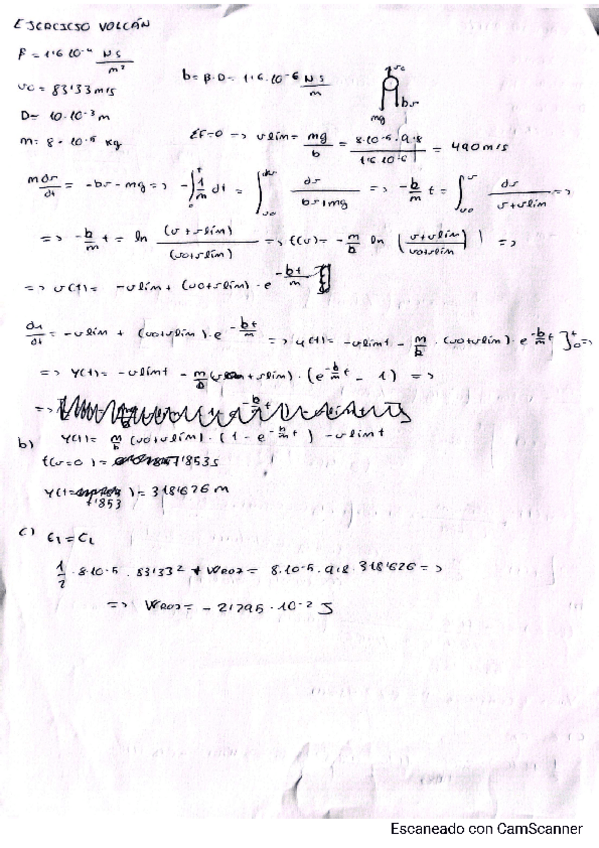 EJERCICIO VOLCÁN
β = 1'6·10⁻⁴ NS/m²
v0 = 83'33 m/s
b = β·D = 1'6·10⁻⁶ NS/m
v0
D = 10·10⁻³ m
bv
mg
m = 8·10⁻⁵ kg
ΣF=0 => vlim = mg/b = 8·10⁻⁵·9'8 / 1'6·10⁻⁶ = 490 m/s
m dv/dt = -bv - mg => -∫ 1/m dt = ∫ dv/bv+mg => -b/m t = ∫ dv/v+vlim =>
=> -b/m t = ln (v+vlim)/(v0+vlim) => t(v) = -m/b ln (v+vlim/v0+vlim) =>
=> v(t) = -vlim + (v0+vlim)·e^(-bt/m)
= -vlim + (v0+vlim)·e^(-bt/m) => y(t) = -vlimt - m/b·(v0+vlim)·e^(-b/m t)]₀ᵗ =>
=> y(t) = -vlimt - m/b (+vlim)·(e^(-b/m t) - 1) =>
=>
b) y(t) = m/b (v0+vlim)·(1 - e^(-b/m t)) - vlimt
t(v=0) = 7'853s
y(t= 7'853) = 318'626 m
c) E1 = E2
1/2·8·10⁻⁵·83'33² + Wroz = 8·10⁻⁵·9'8·318'626 =>
=> Wroz = -2'795·10⁻² J
Escaneado con CamScanner